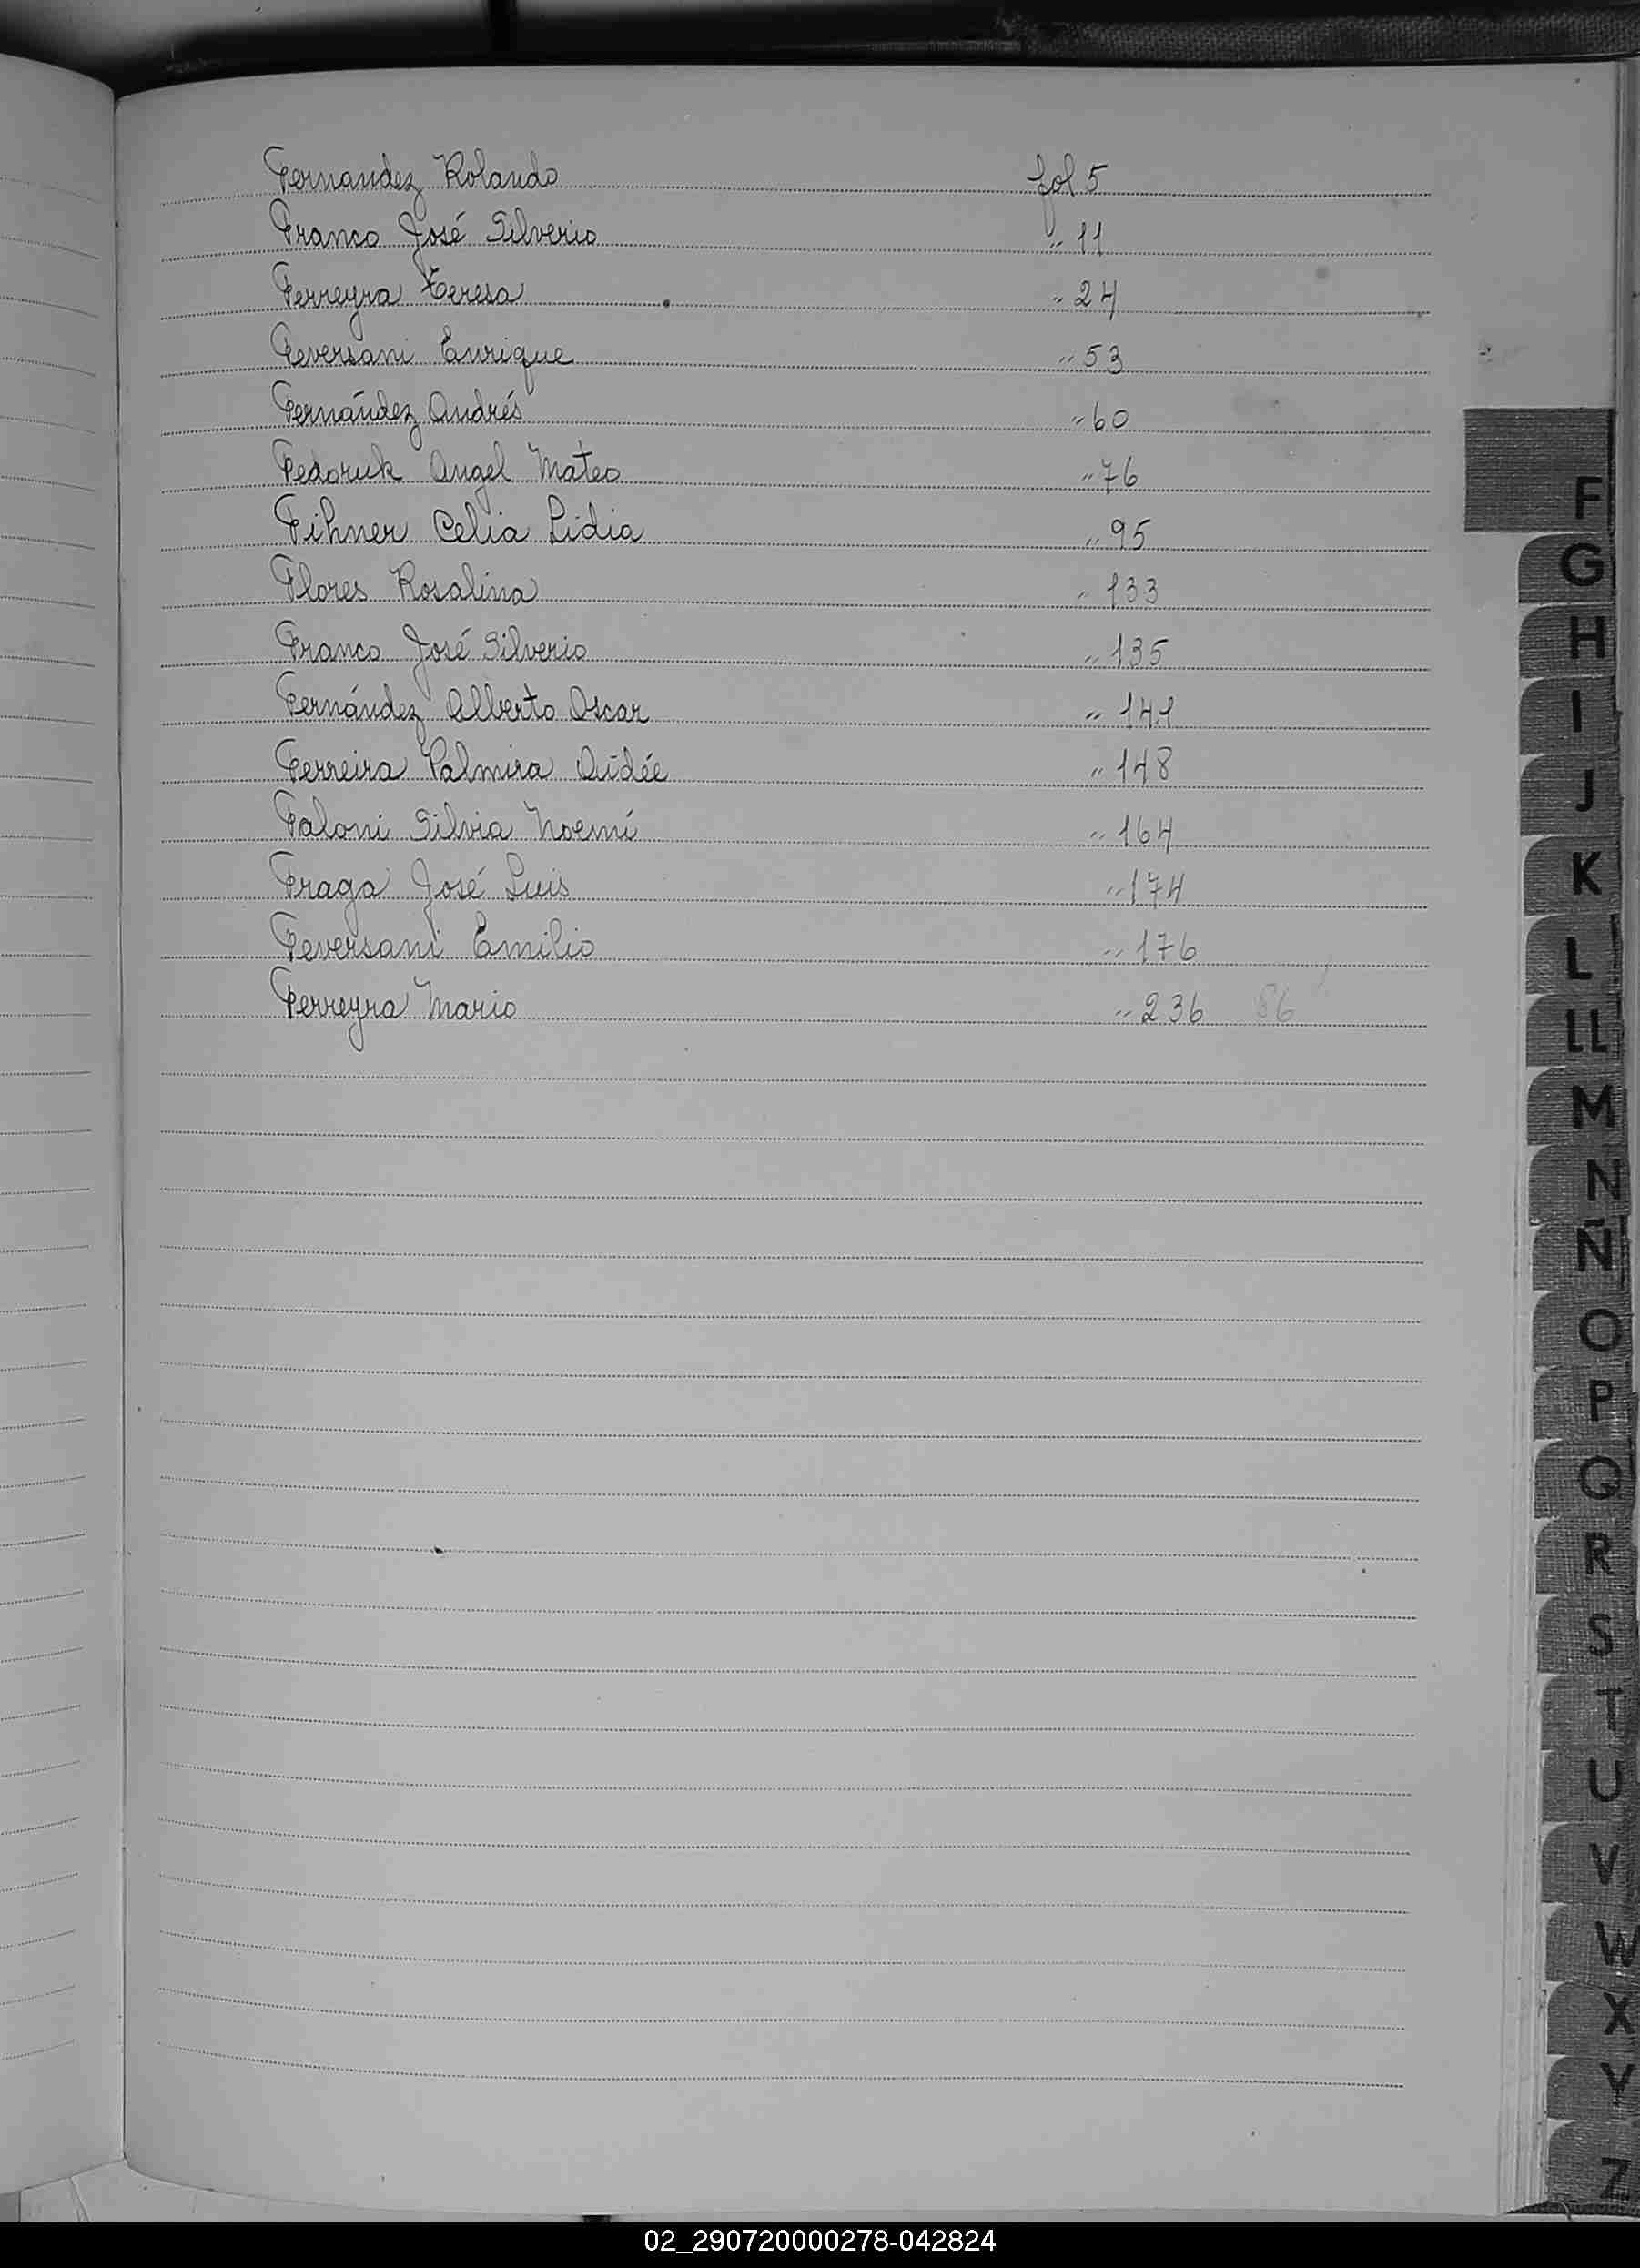 Fernandez Rolando fol 5
Franco José Silverio " 11
Ferreyra Teresa " 24
Feversani Enrique " 53
Fernández Andrés " 60
Fedoruk Angel Mateo " 76
Fihner Celia Lidia " 95
Flores Rosalina " 133
Franco José Silverio " 135
Fernández Alberto Oscar " 141
Ferreira Palmira Aidée " 148
Faloni Silvia Noemí " 164
Fraga José Luis " 174
Feversani Emilio " 176
Ferreyra Mario " 236 86
F
G
H
I
J
K
L
LL
M
N
Ñ
O
P
Q
R
S
T
U
V
W
X
Y
Z
02_290720000278-042824